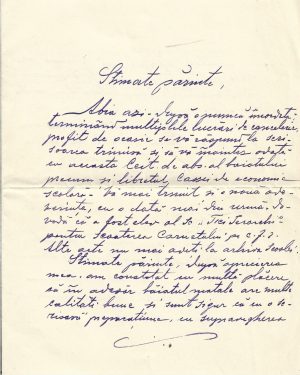 Stimate părinte,
Abia azi - după o muncă încordată,
terminând multiplele lucrări de cancelarie
profit de ocazie să vă răspund la scri-
soarea trimisă și să vă înaintez odată
cu aceasta Cert. de abs. al băiatului
precum și libretul Cassei de economie
școlară. Vă mai trimit și o nouă ade-
verință, cu o dată mai din urmă, do-
vadă că a fost elev al Șc. "Trei Ierarhi"
pentru scoaterea Carnetului pe c.f.r.
Alte acte nu mai aveți la arhiva școalei.
Stimate părinte, după aprecierea
mea - am constatat cu multă plăcere
că în adevăr băiatul matale are multe
calități bune și sunt sigur că cu o se-
rioasă preparațiune, cu supravegherea